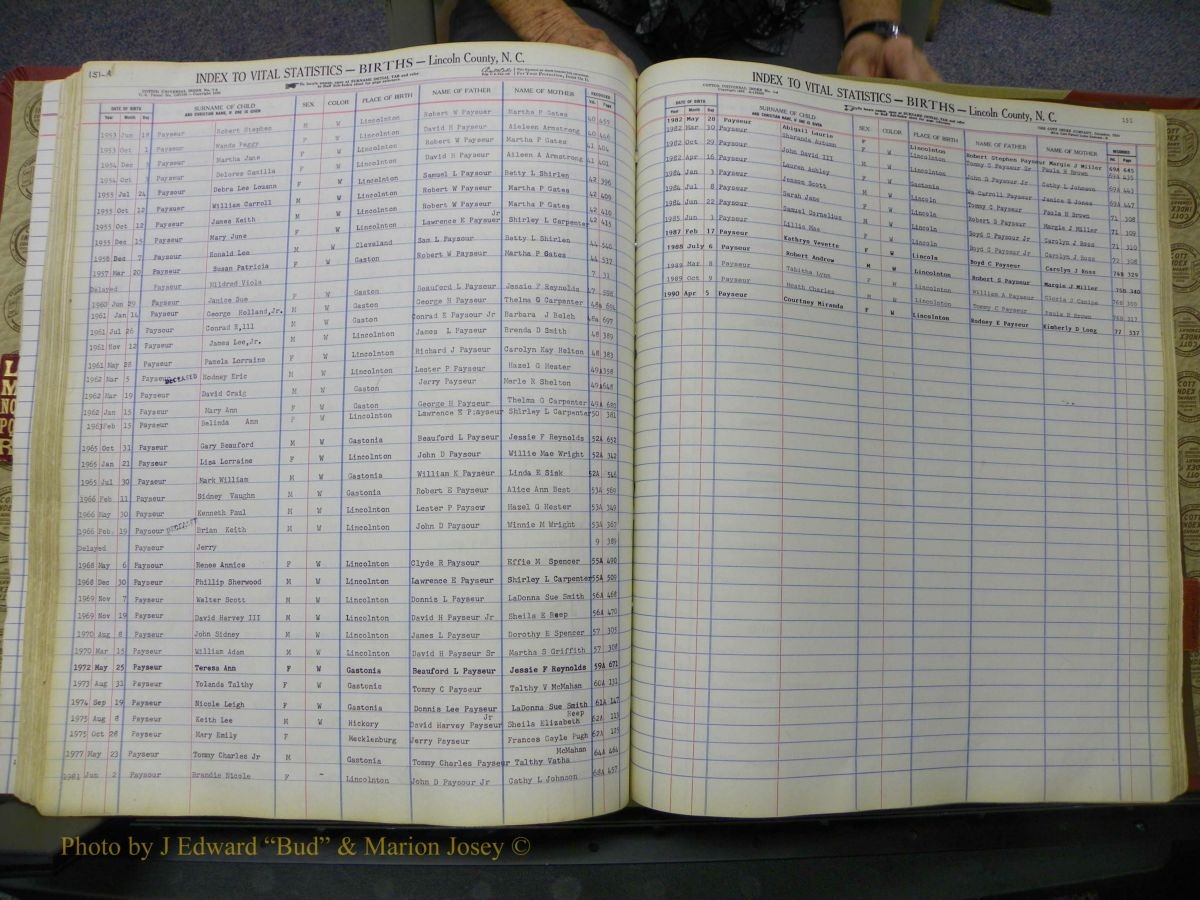 151-A
INDEX TO VITAL STATISTICS — BIRTHS — Lincoln County, N. C.
DATE OF BIRTH
Year Month Day
SURNAME OF CHILD
AND CHRISTIAN NAME, IF ONE IS GIVEN
SEX
COLOR
PLACE OF BIRTH
NAME OF FATHER
NAME OF MOTHER
RECORDED
Vol. Page
1953 Jun Payseur Robert Stephen M W Lincolnton Robert W Payseur Martha P Gates 40 455
1953 Oct 1 Payseur Wanda Peggy F W Lincolnton David H Payseur Aileen Armstrong 40 446
1954 Dec Payseur Martha Jane F W Lincolnton Robert W Payseur Martha P Gates 41 404
1954 Oct Payseur Delores Camilla F W Lincolnton David H Payseur Aileen A Armstrong 41 401
1955 Jul 24 Payseur Debra Lee Louann F W Lincolnton Samuel L Payseur Betty L Shirlen 42 396
1955 Oct 12 Payseur William Carroll M W Lincolnton Robert W Payseur Martha P Gates 42 409
1955 Oct 12 Payseur James Keith M W Lincolnton Robert W Payseur Martha P Gates 42 410
1955 Dec 15 Payseur Mary June F W Lincolnton Lawrence E Payseur Jr Shirley L Carpenter 42 415
1956 Dec 7 Payseur Ronald Lee M W Cleveland Sam L Paysour Betty L Shirlen 44 540
1957 Mar 20 Payseur Susan Patricia F W Gaston Robert W Payseur Martha P Gates 44 537
Delayed Payseur Mildred Viola 7 31
1960 Jun 29 Payseur Janice Sue F W Gaston Beauford L Payseur Jessie F Reynolds 47 598
1961 Jan 14 Payseur George Holland,Jr. M W Gaston George H Payseur Thelma G Carpenter 48a
1961 Jul 26 Payseur Conrad E,lll M W Gaston Conrad E Payseur Jr Barbara J Belch 48a 697
1961 Nov 12 Payseur James Lee,Jr. M W Lincolnton James L Payseur Brenda D Smith 48 389
1961 May 28 Payseur Pamela Lorraine F W Lincolnton Richard J Payseur Carolyn Kay Helton 48 383
1962 Mar 5 Payseur DECEASED Rodney Eric M W Lincolnton Lester P Payseur Hazel G Hester 49A 358
1962 Mar 19 Payseur David Craig M W Gaston Jerry Payseur Merle R Shelton 49A 648
1962 Jan 15 Payseur Mary Ann F W Gaston George H Payseur Thelma G Carpenter 49A 680
1963 Feb 15 Payseur Belinda Ann F W Lincolnton Lawrence E Payseur Shirley L Carpenter 50 381
1965 Oct 31 Payseur Gary Beauford M W Gastonia Beauford L Payseur Jessie F Reynolds 52A 652
1965 Jan 21 Payseur Lisa Lorraine F W Lincolnton John D Payseur Willie Mae Wright 52A 342
1965 Jul 30 Payseur Mark William M W Gastonia William K Payseur Linda E Sisk 52A 546
1966 Feb 11 Payseur Sidney Vaughn M W Gastonia Robert E Payseur Alice Ann Best 53A 569
1966 May 30 Payseur Kenneth Paul M W Lincolnton Lester P Payseur Hazel G Hester 53A 349
1966 Feb 19 Payseur DECEASED Brian Keith M W Lincolnton John D Paysour Winnie M Wright 53A 367
Delayed Payseur Jerry 9 389
1968 May 6 Payseur Renee Annice F W Lincolnton Clyde R Payseur Effie M Spencer 55A 490
1968 Dec 30 Payseur Phillip Sherwood M W Lincolnton Lawrence E Payseur Shirley L Carpenter 55A 509
1969 Nov 7 Payseur Walter Scott M W Lincolnton Donnis L Payseur LaDonna Sue Smith 56A 468
1969 Nov 19 Payseur David Harvey III M W Lincolnton David H Payseur Jr Sheila E Reep 56A 470
1970 Aug 8 Payseur John Sidney M W Lincolnton James L Payseur Dorothy E Spencer 57 305
1970 Mar 15 Payseur William Adam M W Lincolnton David H Payseur Sr Martha S Griffith 57 308
1972 May 25 Payseur Teresa Ann F W Gastonia Beauford L Payseur Jessie F Reynolds 59A 671
1973 Aug 31 Payseur Yolanda Talthy F W Gastonia Tommy C Payseur Talthy V McMahan 60A 131
1974 Sep 19 Payseur Nicole Leigh F W Gastonia Donnis Lee Payseur LaDonna Sue Smith 61A 147
1975 Aug 8 Payseur Keith Lee M W Hickory David Harvey Payseur Jr Sheila Elizabeth Reep 62A 113
1975 Oct 28 Payseur Mary Emily F Mecklenburg Jerry Payseur Frances Gayle Pugh 62A 125
1977 May 23 Payseur Tommy Charles Jr M Gastonia Tommy Charles Payseur Talthy Vatha McMahan 64A 464
1981 Jun 2 Paysour Brandie Nicole F - Lincolnton John D Paysour Jr Cathy L Johnson 68A 457
INDEX TO VITAL STATISTICS — BIRTHS — Lincoln County, N. C.
151
DATE OF BIRTH
Year Month Day
SURNAME OF CHILD
AND CHRISTIAN NAME, IF ONE IS GIVEN
SEX
COLOR
PLACE OF BIRTH
NAME OF FATHER
NAME OF MOTHER
RECORDED
Vol. Page
1982 May 28 Payseur Abigail Laurie F W Lincolnton Robert Stephen Payseur Margie J Miller 69A 645
1982 Mar 10 Payseur Sharanda Autumn F W Lincolnton Tommy C Payseur Sr Paula H Brown 69A 435
1982 Oct 29 Paysour John David III M W Lincolnton John D Paysour Jr Cathy L Johnson 69A 443
1982 Apr 16 Payseur Lauren Ashley F W Gastonia Wm Carroll Payseur Janice S Jones 69A 447
1984 Jan 3 Payseur Joseph Scott M W Lincoln Tommy C Payseur Paula H Brown 71 308
1984 Jul 8 Payseur Sarah Jane F W Lincoln Robert S Payseur Margie J Miller 71 309
1984 Jun 22 Payseur Samuel Cornelius M W Lincoln Boyd C Payseur Jr Carolyn J Ross 71 310
1985 Jun 3 Payseur Lillie Mae F W Lincoln Boyd C Payseur Jr Carolyn J Ross 72 308
1987 Feb 17 Payseur Kathryn Vevette F W Lincoln Boyd C Payseur Carolyn J Ross 74B 329
1988 July 6 Payseur Robert Andrew M W Lincolnton Robert S Payseur Margie J Miller 75B 340
1989 Mar 8 Payseur Tabitha Lynn F W Lincolnton William A Payseur Gloria J Canipe 76B
1989 Oct 9 Payseur Heath Charles M W Lincolnton Tommy C Payseur Paula H Brown 76B 317
1990 Apr 5 Payseur Courtney Miranda F W Lincolnton Rodney E Payseur Kimberly D Long 77 337
Photo by J Edward “Bud” & Marion Josey ©